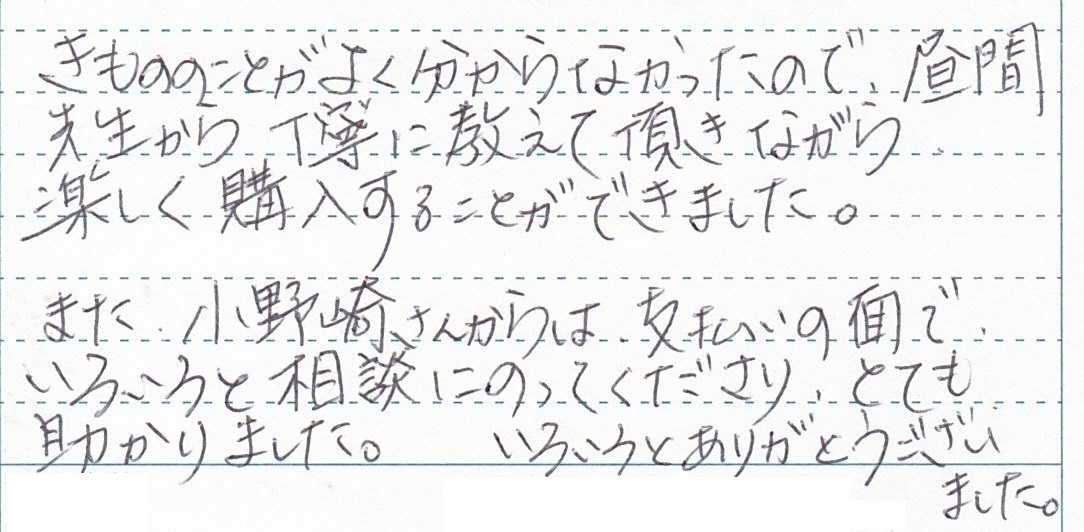 きもののことがよく分からなかったので、昼間
先生から丁寧に教えて頂きながら、
楽しく購入することができました。
また、小野崎さんからは、支払いの面で、
いろいろと相談にのってくださり、とても
助かりました。　いろいろとありがとうござい
ました。